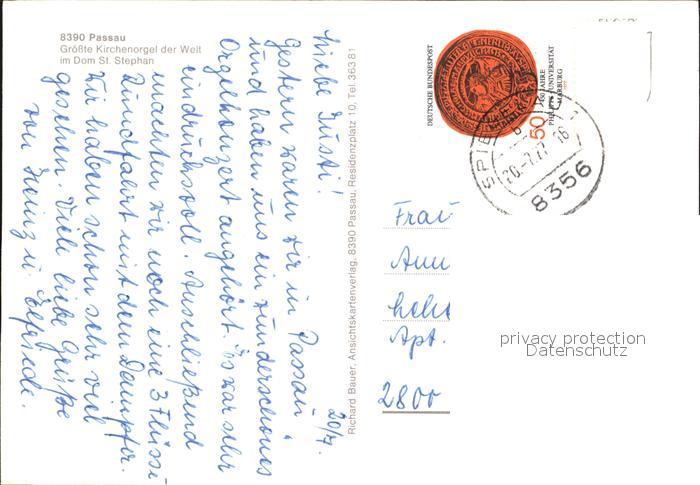 8390 Passau
Größte Kirchenorgel der Welt
im Dom St. Stephan
20/7.
Liebe Gusti!
Gestern waren wir in Passau
und haben uns ein wunderschönes
Orgelkonzert angehört. Es war sehr
eindrucksvoll. Anschließend
machten wir noch eine 3 Flüsse
Rundfahrt mit dem Dampfer.
Wir haben schon sehr viel
gesehen. Viele liebe Grüße
von Heinz u. Elfriede.
Richard Bauer, Ansichtskartenverlag, 8390 Passau, Residenzplatz 10, Tel. 36381
DEUTSCHE BUNDESPOST
50
JAHRE
PHILIPPS-UNIVERSITÄT
MARBURG
SPIE
20.-7.77-16
8356
Frau
Ann
hele
Apt.
2800
privacy protection
Datenschutz